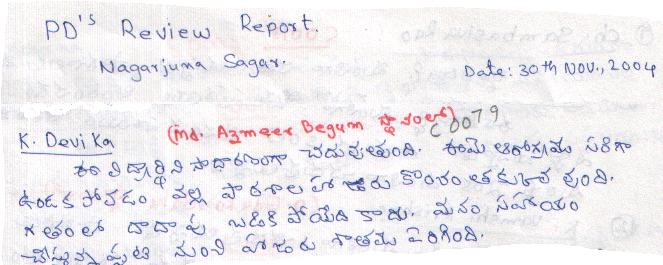 PD's Review Report.
Nagarjuna Sagar.
Date: 30th NOV., 2004
(Md. Azmeer Begum స్థానంలో)
C0079
K. Devika
ఈ విద్యార్థిని సాధారణంగా చదువుతుంది. ఈమె ఆరోగ్యము సరిగా
ఉండక పోవడం వల్ల పాఠశాల హాజరు కొంచం తక్కువ వుంది.
గతంలో దాదాపు బడికి పోయేది కాదు. మనం సహాయం
చేస్తున్నప్పటి నుంచి హాజరు శాతము పెరిగింది.